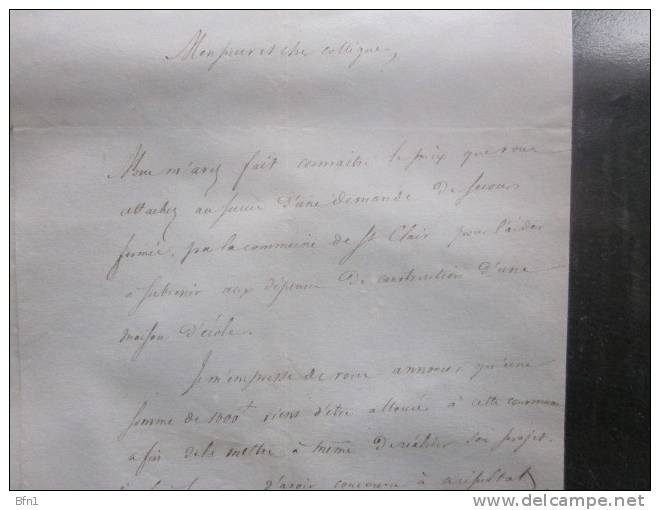 Monsieur et cher collègue,
Vous m'avez fait connaître le prix que vous
attachez au succès d'une demande de secours
formée par la commune de St Clair pour l'aider
à subvenir aux dépenses de construction d'une
maison d'école.
Je m'empresse de vous annoncer qu'une
somme de 1000f vient d'être allouée à cette commune
afin de la mettre à même de réaliser son projet.
d'avoir concouru à ce résultat
Bfn1
© delcampe.net